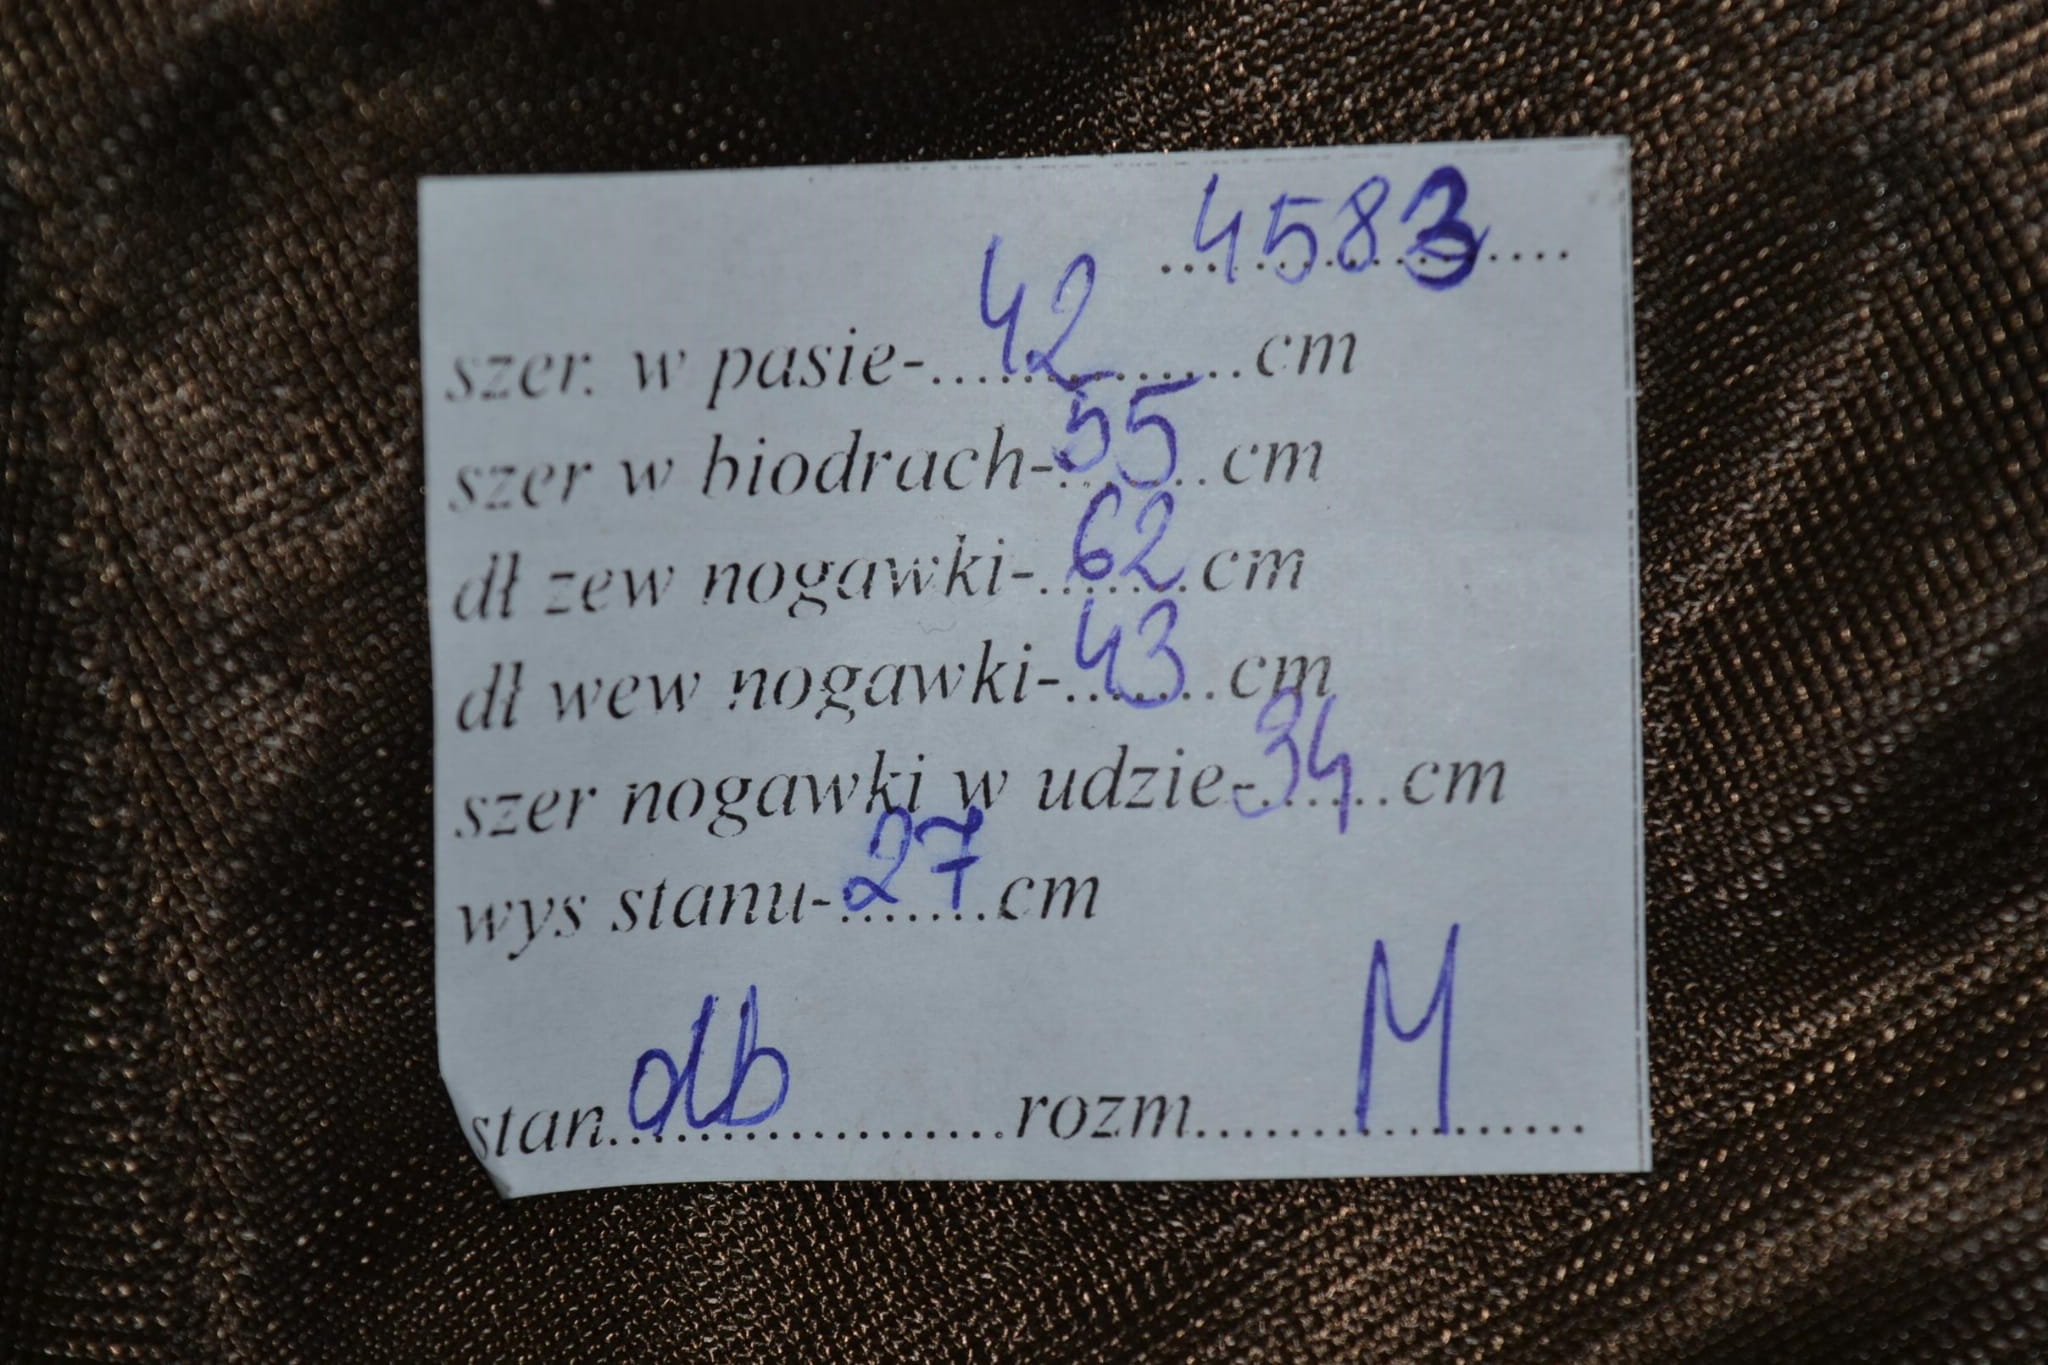 4583
szer. w pasie-42cm
szer w biodrach-55cm
dł zew nogawki-62cm
dł wew nogawki-43cm
szer nogawki w udzie-34cm
wys stanu-27cm
stan db rozm M